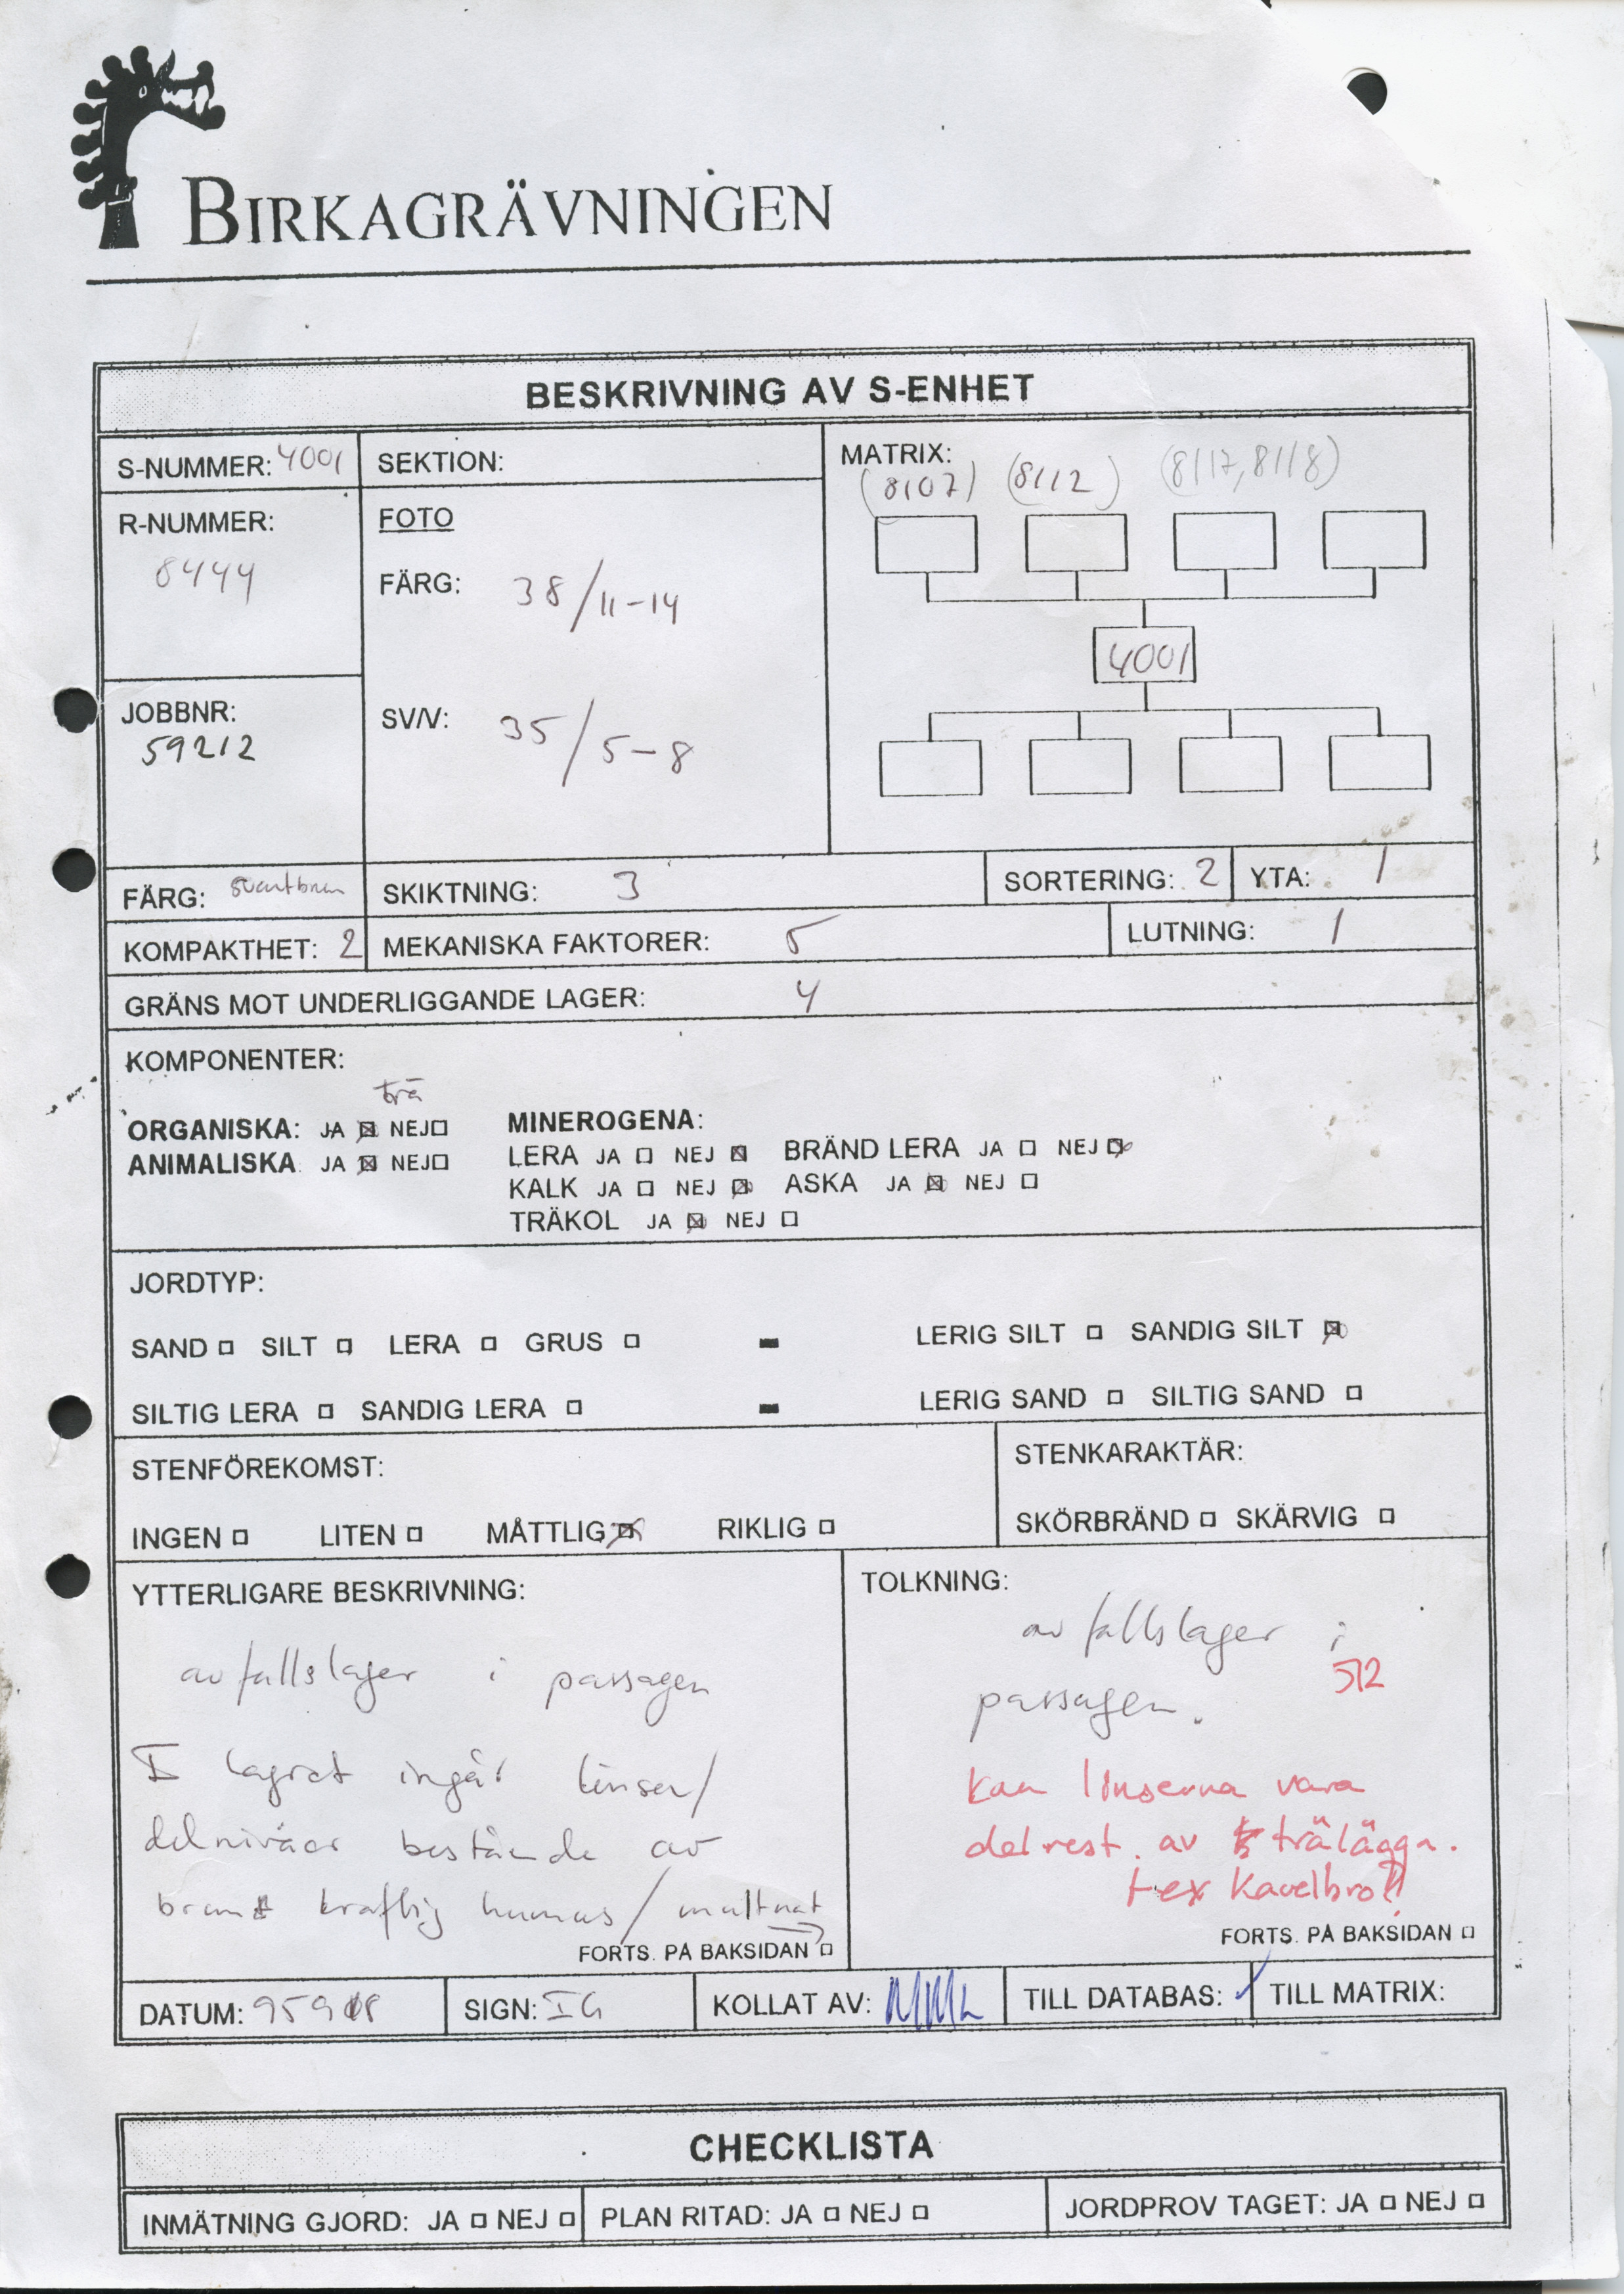 BIRKAGRÄVNINGEN
BESKRIVNING AV S-ENHET
S-NUMMER: 4001
SEKTION:
MATRIX:
(8107) (8112) (8117, 8118)
R-NUMMER:
8444
FOTO
FÄRG: 38/11-14
4001
JOBBNR:
59212
SV/V: 35/5-8
FÄRG: svartbrun
SKIKTNING: 3
SORTERING: 2
YTA: 1
KOMPAKTHET: 2
MEKANISKA FAKTORER: 5
LUTNING: 1
GRÄNS MOT UNDERLIGGANDE LAGER: 4
KOMPONENTER:
trä
ORGANISKA: JA ☒ NEJ ☐
ANIMALISKA JA ☒ NEJ ☐
MINEROGENA:
LERA JA ☐ NEJ ☒ BRÄND LERA JA ☐ NEJ ☒
KALK JA ☐ NEJ ☒ ASKA JA ☒ NEJ ☐
TRÄKOL JA ☒ NEJ ☐
JORDTYP:
SAND ☐ SILT ☐ LERA ☐ GRUS ☐ - LERIG SILT ☐ SANDIG SILT ☒
SILTIG LERA ☐ SANDIG LERA ☐ - LERIG SAND ☐ SILTIG SAND ☐
STENFÖREKOMST:
INGEN ☐ LITEN ☐ MÅTTLIG ☒ RIKLIG ☐
STENKARAKTÄR:
SKÖRBRÄND ☐ SKÄRVIG ☐
YTTERLIGARE BESKRIVNING:
avfallslager i passagen
I lagret ingår linser/
delnivåer bestående av
brunt kraftig humus/multnat
FORTS. PÅ BAKSIDAN ☐
TOLKNING:
avfallslager i
512
passagen.
Kan linserna vara
delrest. av trälägga.
tex Kavelbro!!
FORTS. PÅ BAKSIDAN ☐
DATUM: 9590
SIGN: IG
KOLLAT AV: MML
TILL DATABAS: ✓
TILL MATRIX:
CHECKLISTA
INMÄTNING GJORD: JA ☐ NEJ ☐
PLAN RITAD: JA ☐ NEJ ☐
JORDPROV TAGET: JA ☐ NEJ ☐